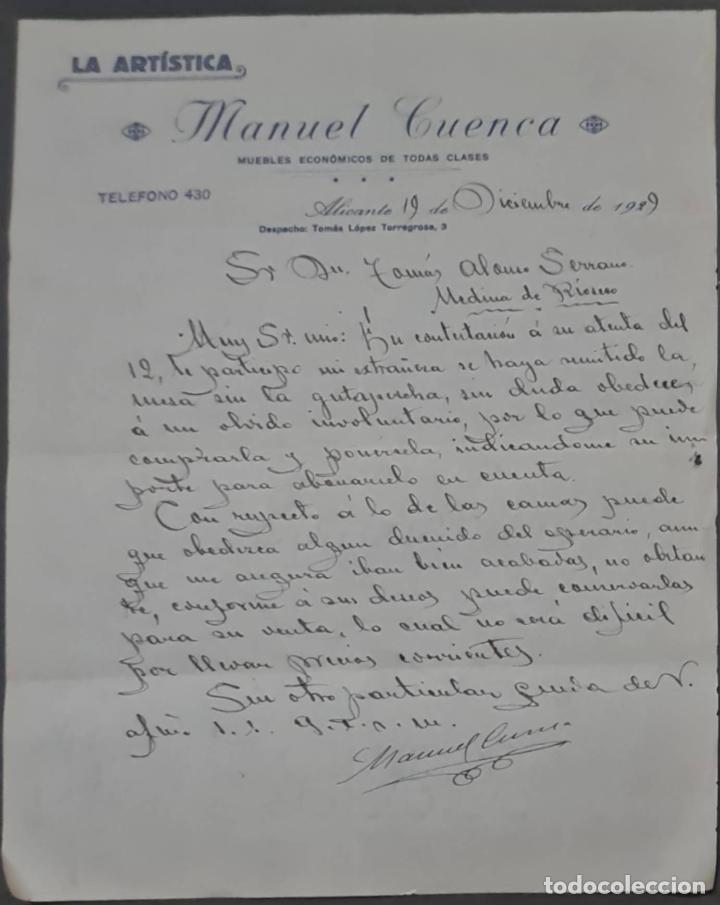 LA ARTÍSTICA
Manuel Cuenca
MUEBLES ECONÓMICOS DE TODAS CLASES
TELEFONO 430
Alicante 19 de Diciembre de 1929
Despacho: Tomás López Torregrosa, 3
Sr Dn. Tomás Alonso Serrano.
Medina de Rioseco
Muy Sr. mio: En contestación á su atenta del
12, le participo mi estrañeza se haya remitido la
mesa sin la gutapercha, sin duda obedece
á un olvido involuntario, por lo que puede
comprarla y ponersela, indicandome su im
porte para abonarselo en cuenta.
Con respecto á lo de las camas puede
que obedezca algun descuido del operario, aun
que me asegura iban bien acabadas, no obstan
te, conforme á sus deseos puede conservarlas
para su venta, lo cual no será dificil
por llevar precios corrientes.
Sin otro particular queda de V.
afmo. s. s. q. e. s. m.
Manuel Cuenca
todocoleccion
todocoleccion.net